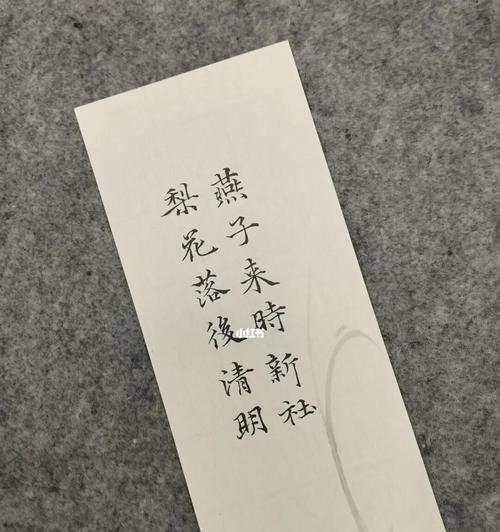 燕子来時新社
梨花落後清明
小红书